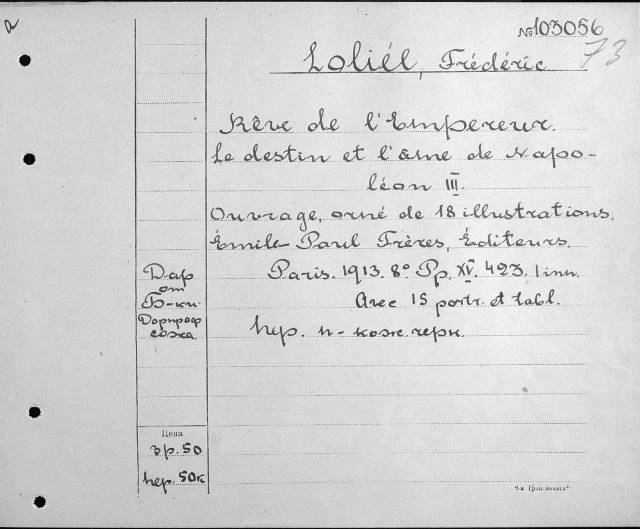 № 103056
73
Loliél, Frédéric
Rêve de l'Empereur.
Le destin et l'âme de Napo-
léon III.
Ouvrage, orné de 18 illustrations.
Émile-Paul Frères, Éditeurs.
Paris. 1913. 8º Pp. XV. 423. 1 inn.
Avec 15 portr. et tabl.
Пер. п-кож. черн.
Дар
от
Б-ки
Дорпроф
сожа.
Цена
3р. 50
пер. 50к